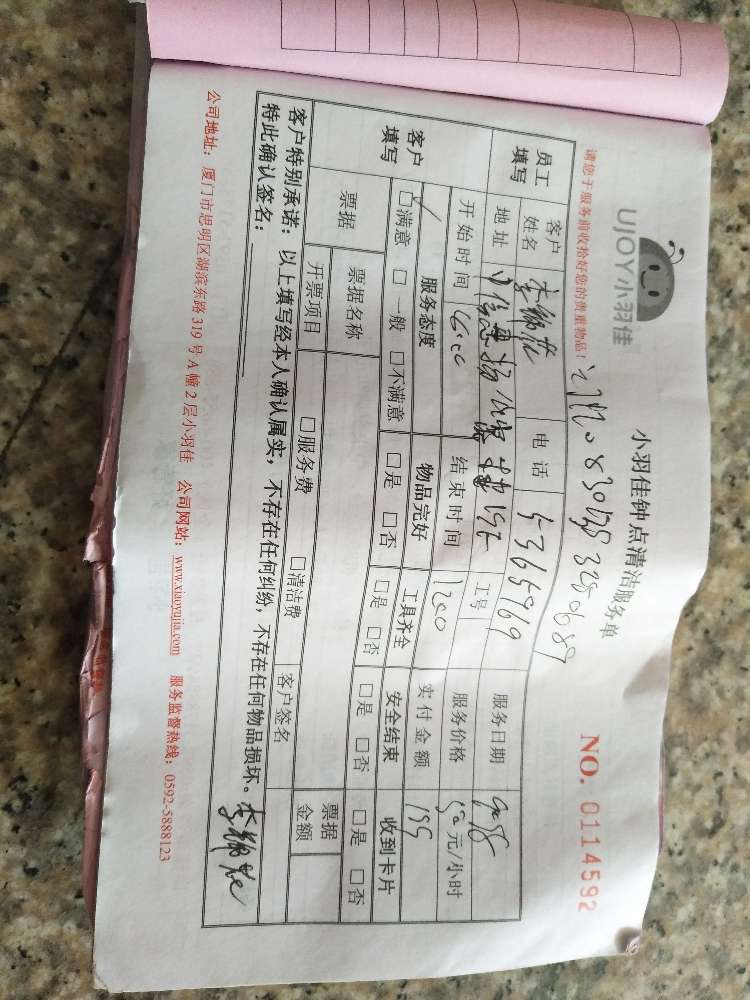 UJOY小羽佳
小羽佳钟点清洁服务单
NO. 0114592
请您于服务前收拾好您的贵重物品！
员工填写 客户姓名 电话 服务日期
地址 工号 服务价格 元/小时
开始时间 结束时间 1200 实付金额
客户填写 服务态度 物品完好 工具齐全 安全结束 收到卡片
☐满意 ☐一般 ☐不满意 ☐是 ☐否 ☐是 ☐否 ☐是 ☐否 ☐是 ☐否
票据 票据名称 票据金额
开票项目 ☐服务费 ☐清洁费 客户签名
客户特别承诺：以上填写经本人确认属实，不存在任何纠纷，不存在任何物品损坏。
特此确认签名：
公司地址：厦门市思明区湖滨东路 319 号 A 幢 2 层小羽佳 公司网站：www.xiaoyujia.com 服务监督热线：0592-5888123